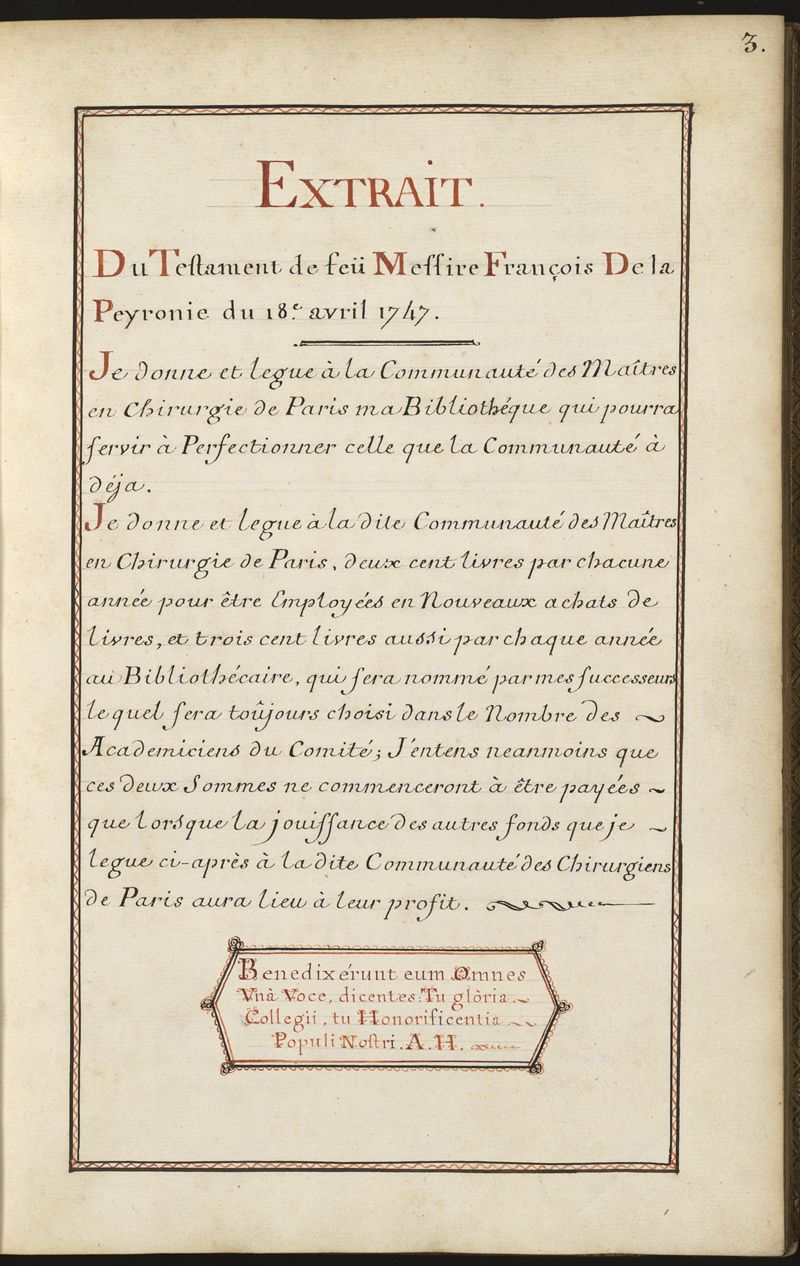 3.
EXTRAIT.
Du Teſtament de feü Meſſire François De la
Peyronie du 18.e avril 1747.
Je donne et legue à la Communauté des Maîtres
en Chirurgie de Paris ma Bibliothéque qui pourra
ſervir à Perfectionner celle que la Communauté à
déja.
Je donne et legue à la dite Communauté des Maîtres
en Chirurgie de Paris, deux cent livres par chacune
année pour être Employées en Nouveaux achats de
livres, et trois cent livres aussi par chaque année
au Bibliothécaire, qui ſera nommé par mes ſuccesseurs
le quel ſera toûjours choisi dans le Nombre des
Academiciens du Comité; J'entens neanmoins que
ces deux Sommes ne commenceront à être payées
que lorsque la jouiſſance des autres fonds que je
legue ci-après à la dite Communauté des Chirurgiens
de Paris aura lieu à leur profit.
Benedixérunt eum Omnes
Vnâ Voce, dicentes: Tu glòria
Collegii, tu Honorificentia
Populi Noſtri. A. H.